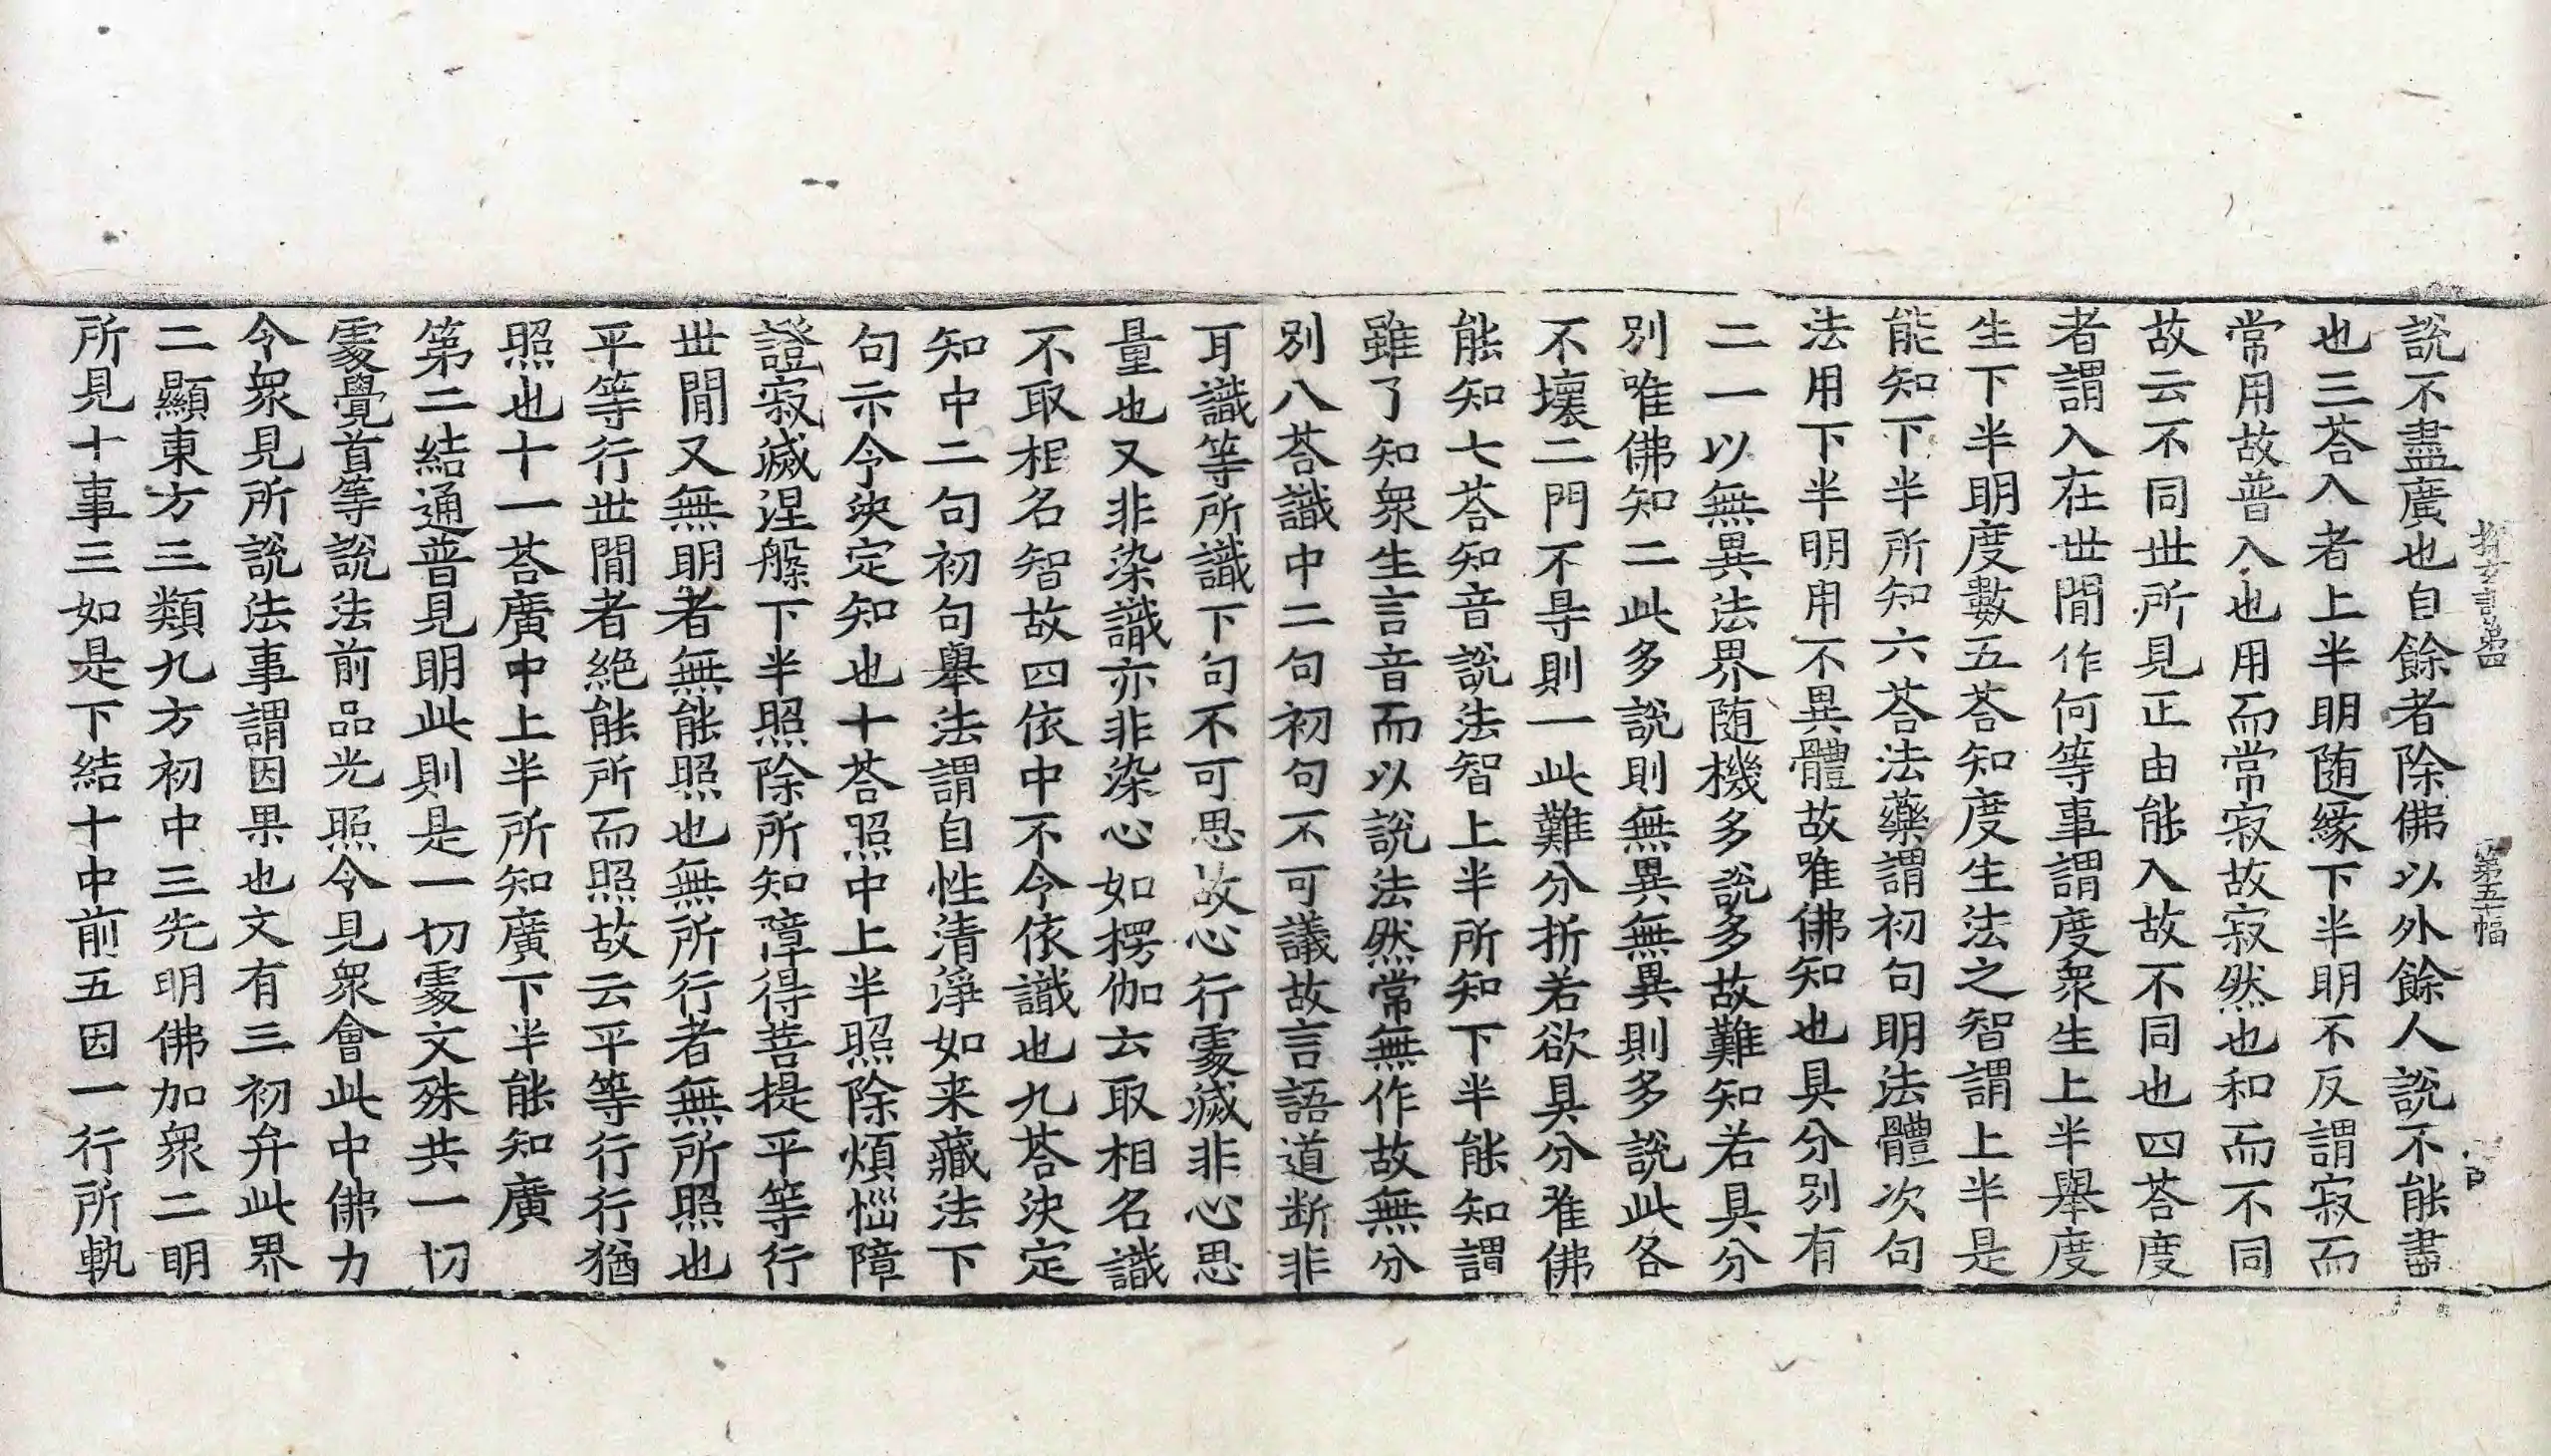 探玄記第四 第五幅
說不盡廣也自餘者除佛以外餘人說不能盡
也三荅入者上半明随緣下半明不反謂寂而
常用故普入也用而常寂故寂然也和而不同
故云不同世所見正由能入故不同也四荅度
者謂入在世間作何等事謂度衆生上半舉度
生下半明度數五荅知度生法之智謂上半是
能知下半所知六荅法藥謂初句明法體次句
法用下半明用不異體故唯佛知也具分別有
二一以無異法界随機多說多故難知若具分
別唯佛知二此多說則無異無異則多說此各
不壞二門不㝵則一此難分折若欲具分唯佛
能知七荅知音說法智上半所知下半能知謂
雖了知衆生言音而以說法然常無作故無分
別八荅識中二句初句不可議故言語道断非
耳識等所識下句不可思故心行䖏滅非心思
量也又非染識亦非染心如楞伽云取相名識
不取相名智故四依中不令依識也九荅決定
知中二句初句舉法謂自性清淨如来藏法下
句示令決定知也十荅照中上半照除煩惱障
證寂滅涅槃下半照除所知障得菩提平等行
世間又無明者無能照也無所行者無所照也
平等行世間者絕能所而照故云平等行行猶
照也十一荅廣中上半所知廣下半能知廣
第二結通普見明此則是一切䖏文殊共一切
䖏覺首等說法前品光照令見衆會此中佛力
令衆見所說法事謂因果也文有三初弁此界
二顯東方三類九方初中三先明佛加衆二明
所見十事三如是下結十中前五因一行所軌